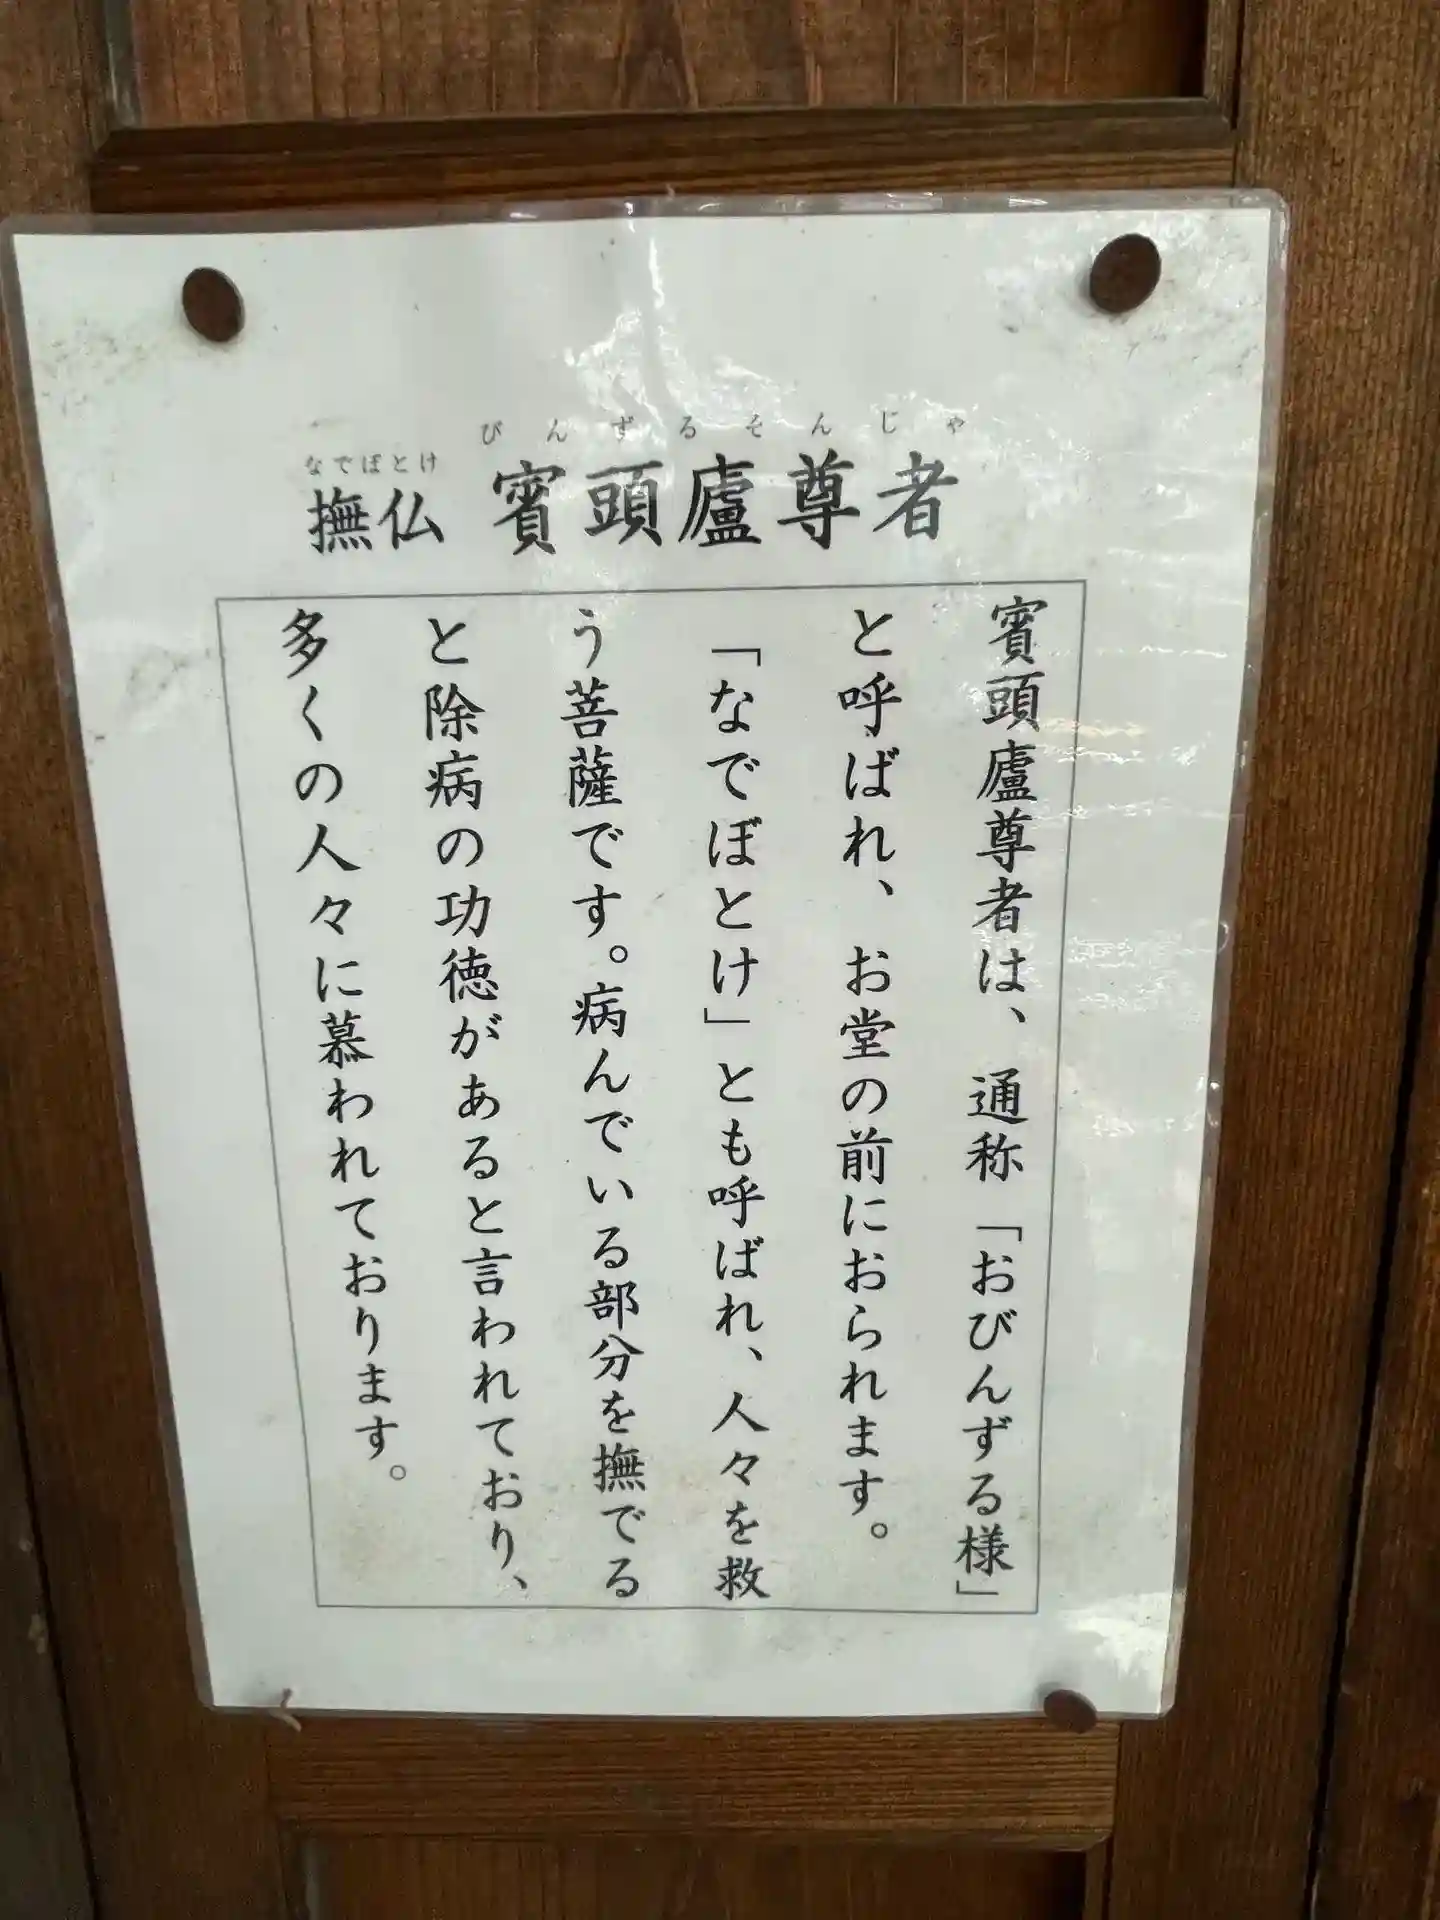 なでぼとけ びんずるそんじゃ
撫仏 賓頭廬尊者
賓頭廬尊者は、通称「おびんずる様」
と呼ばれ、お堂の前におられます。
「なでぼとけ」とも呼ばれ、人々を救
う菩薩です。病んでいる部分を撫でる
と除病の功徳があると言われており、
多くの人々に慕われております。